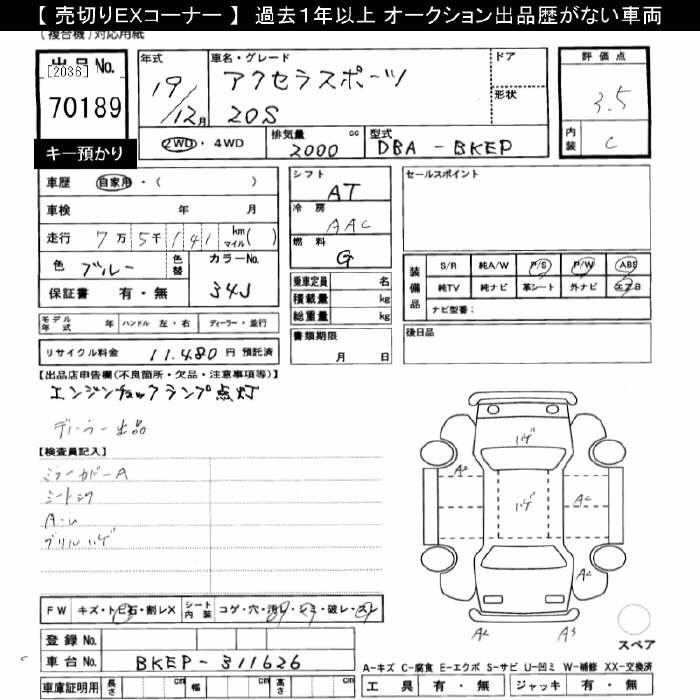 【 売切りEXコーナー 】 過去１年以上 オークション出品歴がない車両
(複合機)対応用紙
出品No.
[2036]
70189
キー預かり
年式
19/12月
車名・グレード
アクセラスポーツ
20S
ドア
形状
2WD・4WD
排気量 cc
2000
型式
DBA - BKEP
評価点
3.5
内装
C
車歴 自家用・( )
車検 年 月
走行 7万5千141 km マイル( )
色 ブルー
色替
カラーNo.
34J
保証書 有・無
シフト
AT
冷房
AAC
燃料
G
乗車定員 名
積載量 kg
総重量 kg
セールスポイント
装備品
S/R 純A/W P/S P/W ABS
純TV 純ナビ 革シート 外ナビ エアB
ナビ型番：
モデル年式 年 ハンドル 左・右 ディーラー・並行
リサイクル料金 11,480 円 預託済
書類期限
月 日
後日品
【出品店申告欄(不良箇所・欠品・注意事項等)】
エンジンチェックランプ点灯
ディーラー出品
【検査員記入】
ミラーカバーA
シート
A・U
グリルハゲ
ハゲ
ハゲ
A2
A2
A2
A2
A3
FW キズ・トビ石・割レX
シート内装 コゲ・穴・汚レ・シミ・破レ・スレ
登録 No.
車台 No. BKEP-311626
車庫証明用 長さ cm 幅 cm 高さ cm
スペア
A-キズ C-腐食 E-エクボ S-サビ U-凹ミ W-補修 XX-交換済
工具 有・無 ジャッキ 有・無